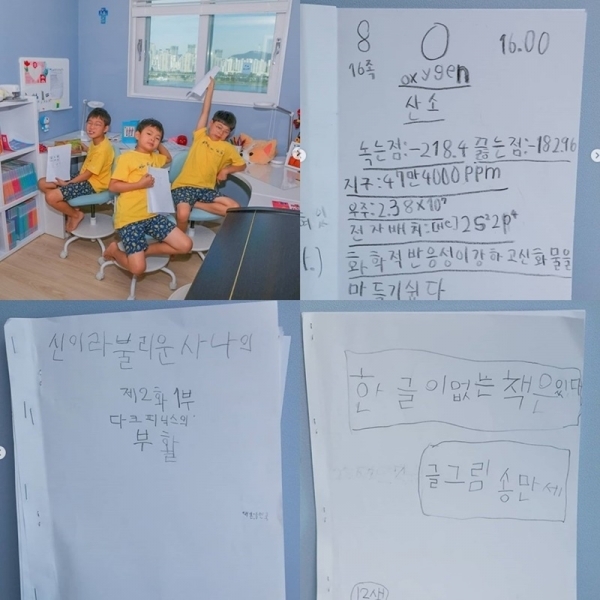 8 O 16.00
16족
oxygen
산소
녹는점:-218.4 끓는점:-182.96
지구:47만4000ppm
우주:2.38×10⁷
전자배치:[He]2S²2P⁴
화학적반응성이강하고산화물을
만들기쉽다
신이라불리운사나의
제2화1부
다크피닉스의
부활
한글이없는책은있다
글그림 송만세